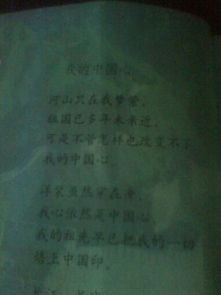 我的中国心
河山只在我梦萦,
祖国已多年未亲近,
可是不管怎样也改变不了
我的中国心。
洋装虽然穿在身,
我心依然是中国心,
我的祖先早已把我的一切
烙上中国印。